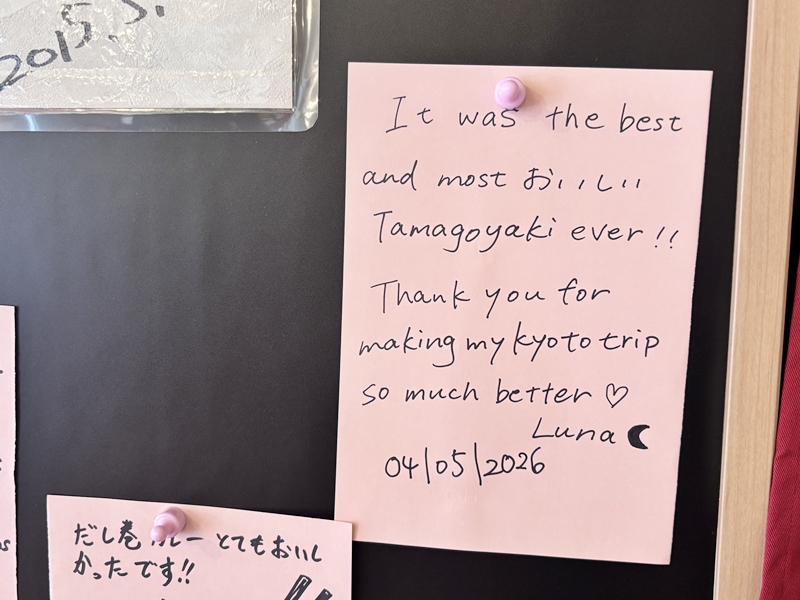 2015.5.
It was the best
and most おいしい
Tamagoyaki ever!!
Thank you for
making my kyoto trip
so much better ♡
Luna
04/05/2026
だし巻カレーとてもおいし
かったです!!